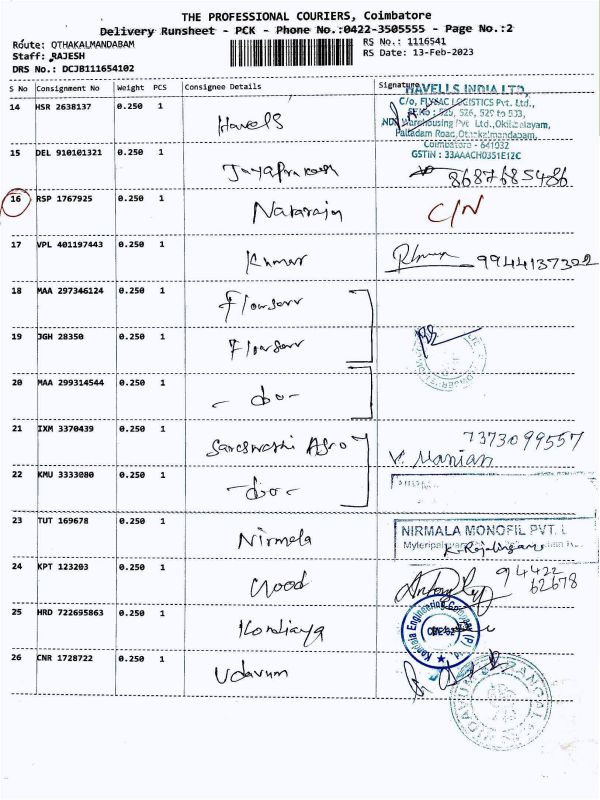 THE PROFESSIONAL COURIERS, Coimbatore
Delivery Runsheet - PCK - Phone No.:0422-3505555 - Page No.:2
Route: OTHAKALMANDABAM
RS No.: 1116541
Staff: RAJESH
RS Date: 13-Feb-2023
DRS No.: DCJB111654102
S No Consignment No Weight PCS Consignee Details Signature
HAVELLS INDIA LTD.
C/o, FLYSAC LOGISTICS Pvt. Ltd.,
525, 526, 529 to 533,
Warehousing Pvt Ltd., Okilipalayam,
Palladam Road, Othakalmandapam,
Coimbatore - 641032
GSTIN : 33AAACH0351E12C
14 HSR 2638137 0.250 1 Havells
15 DEL 910101321 0.250 1 Jayaprakash 8687685486
16 RSP 1767925 0.250 1 Natarajn C/N
17 VPL 401197443 0.250 1 Kumar 9944137302
18 MAA 297346124 0.250 1 Flowserv
19 JGH 28350 0.250 1 Flowserv
20 MAA 299314544 0.250 1 - do -
21 IXM 3370439 0.250 1 Sareswathi Agro 7373099557
V. Manian
22 KMU 3333080 0.250 1 - do -
23 TUT 169678 0.250 1 Nirmala
NIRMALA MONOFIL PVT. L
K. Rajalingam
24 KPT 123203 0.250 1 Good 94422
62678
25 HRD 722695863 0.250 1 Kondiaya
26 CNR 1728722 0.250 1 Udavum